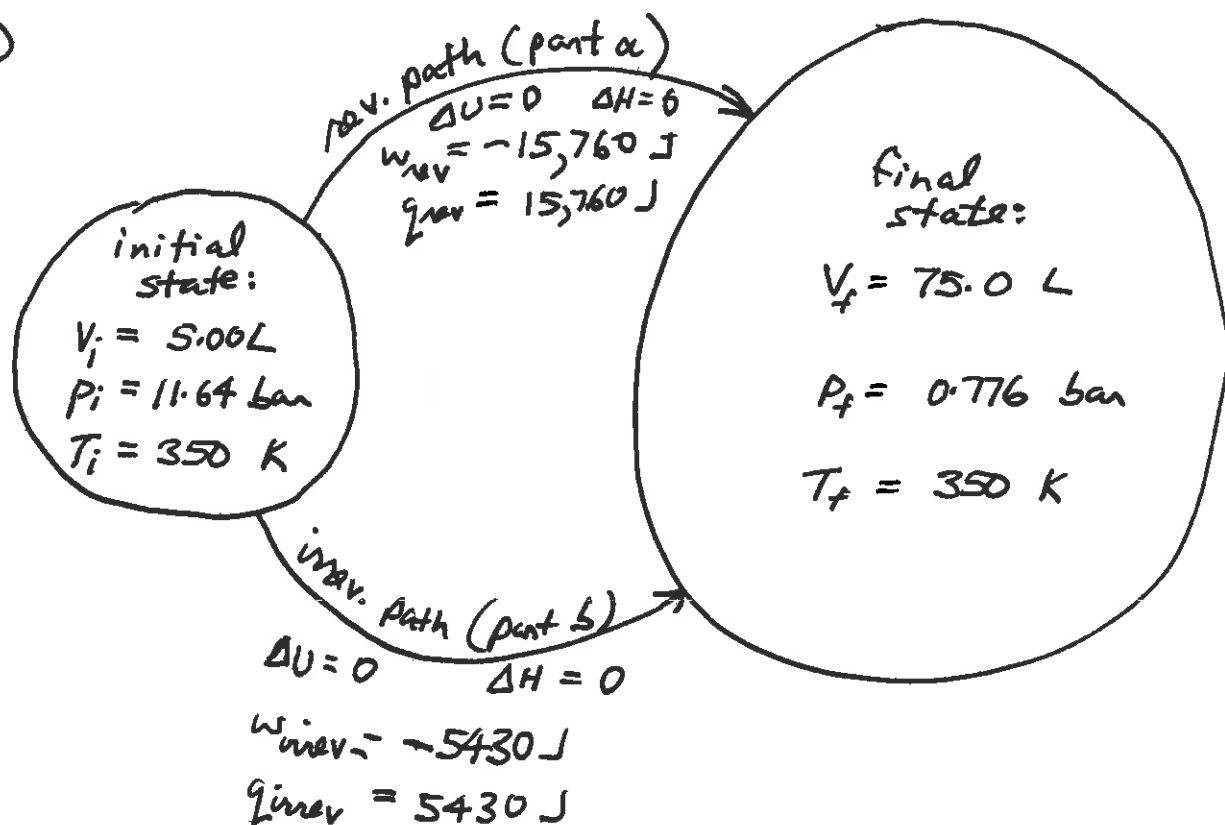 )
rev. path (part a)
ΔU = 0 ΔH = 0
w_rev = -15,760 J
q_rev = 15,760 J
initial
state:
V_i = 5.00 L
P_i = 11.64 bar
T_i = 350 K
final
state:
V_f = 75.0 L
P_f = 0.776 bar
T_f = 350 K
irrev. path (part b)
ΔU = 0 ΔH = 0
w_irrev = -5430 J
q_irrev = 5430 J